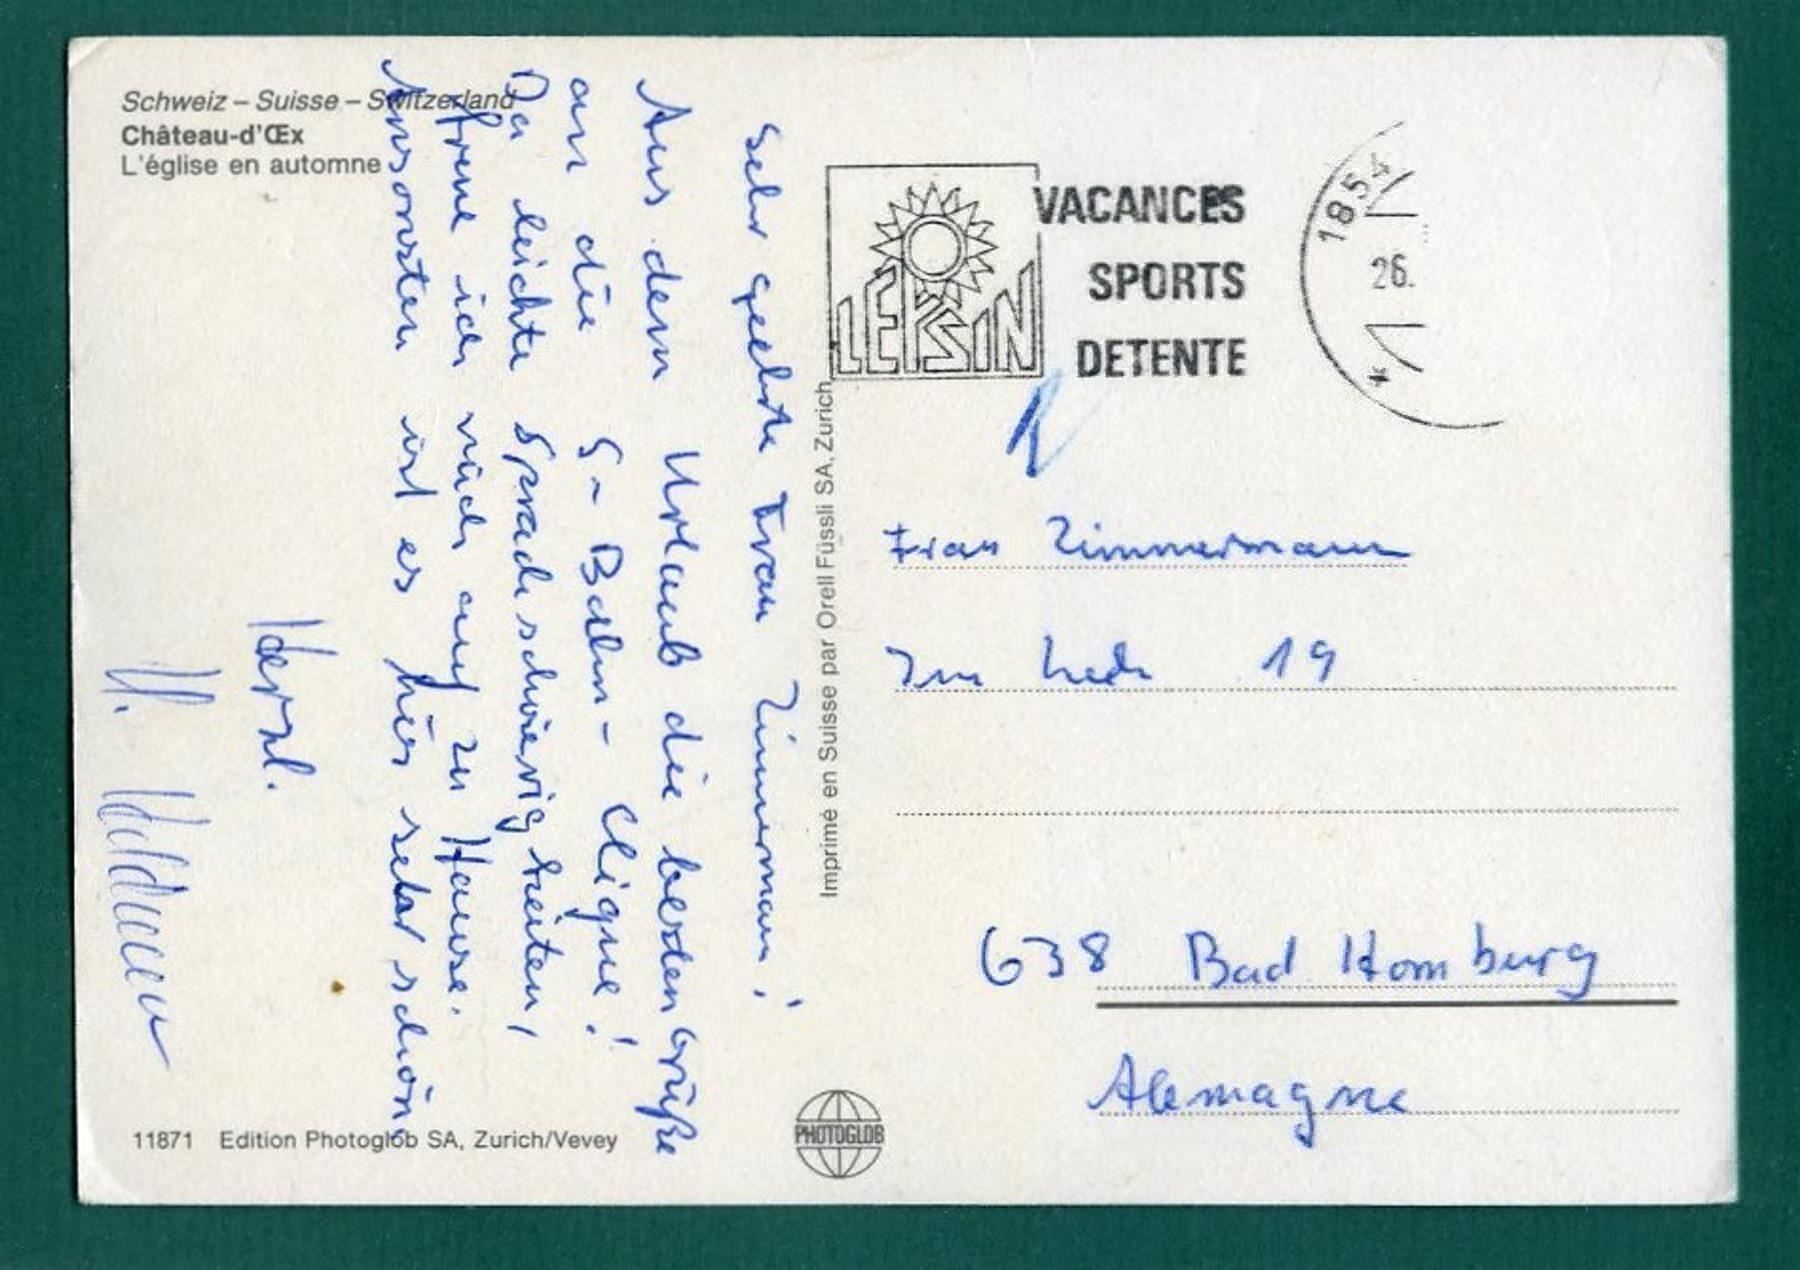 Schweiz – Suisse – Switzerland
Château-d'Œx
L'église en automne
Sehr geehrte Frau Zimmermann!
Aus dem Urlaub die besten Grüße
an die S-Bahn-Clique!
Da leichte Sprachschwierigkeiten,
freue ich mich auf zu Hause.
Ansonsten ist es hier sehr schön
Herzl.
H.
11871 Edition Photoglob SA, Zurich/Vevey
PHOTOGLOB
Imprimé en Suisse par Orell Füssli SA, Zurich
LEYSIN
VACANCES
SPORTS
DETENTE
1854
26.
Frau Zimmermann
Im 19
638 Bad Homburg
Alemagne